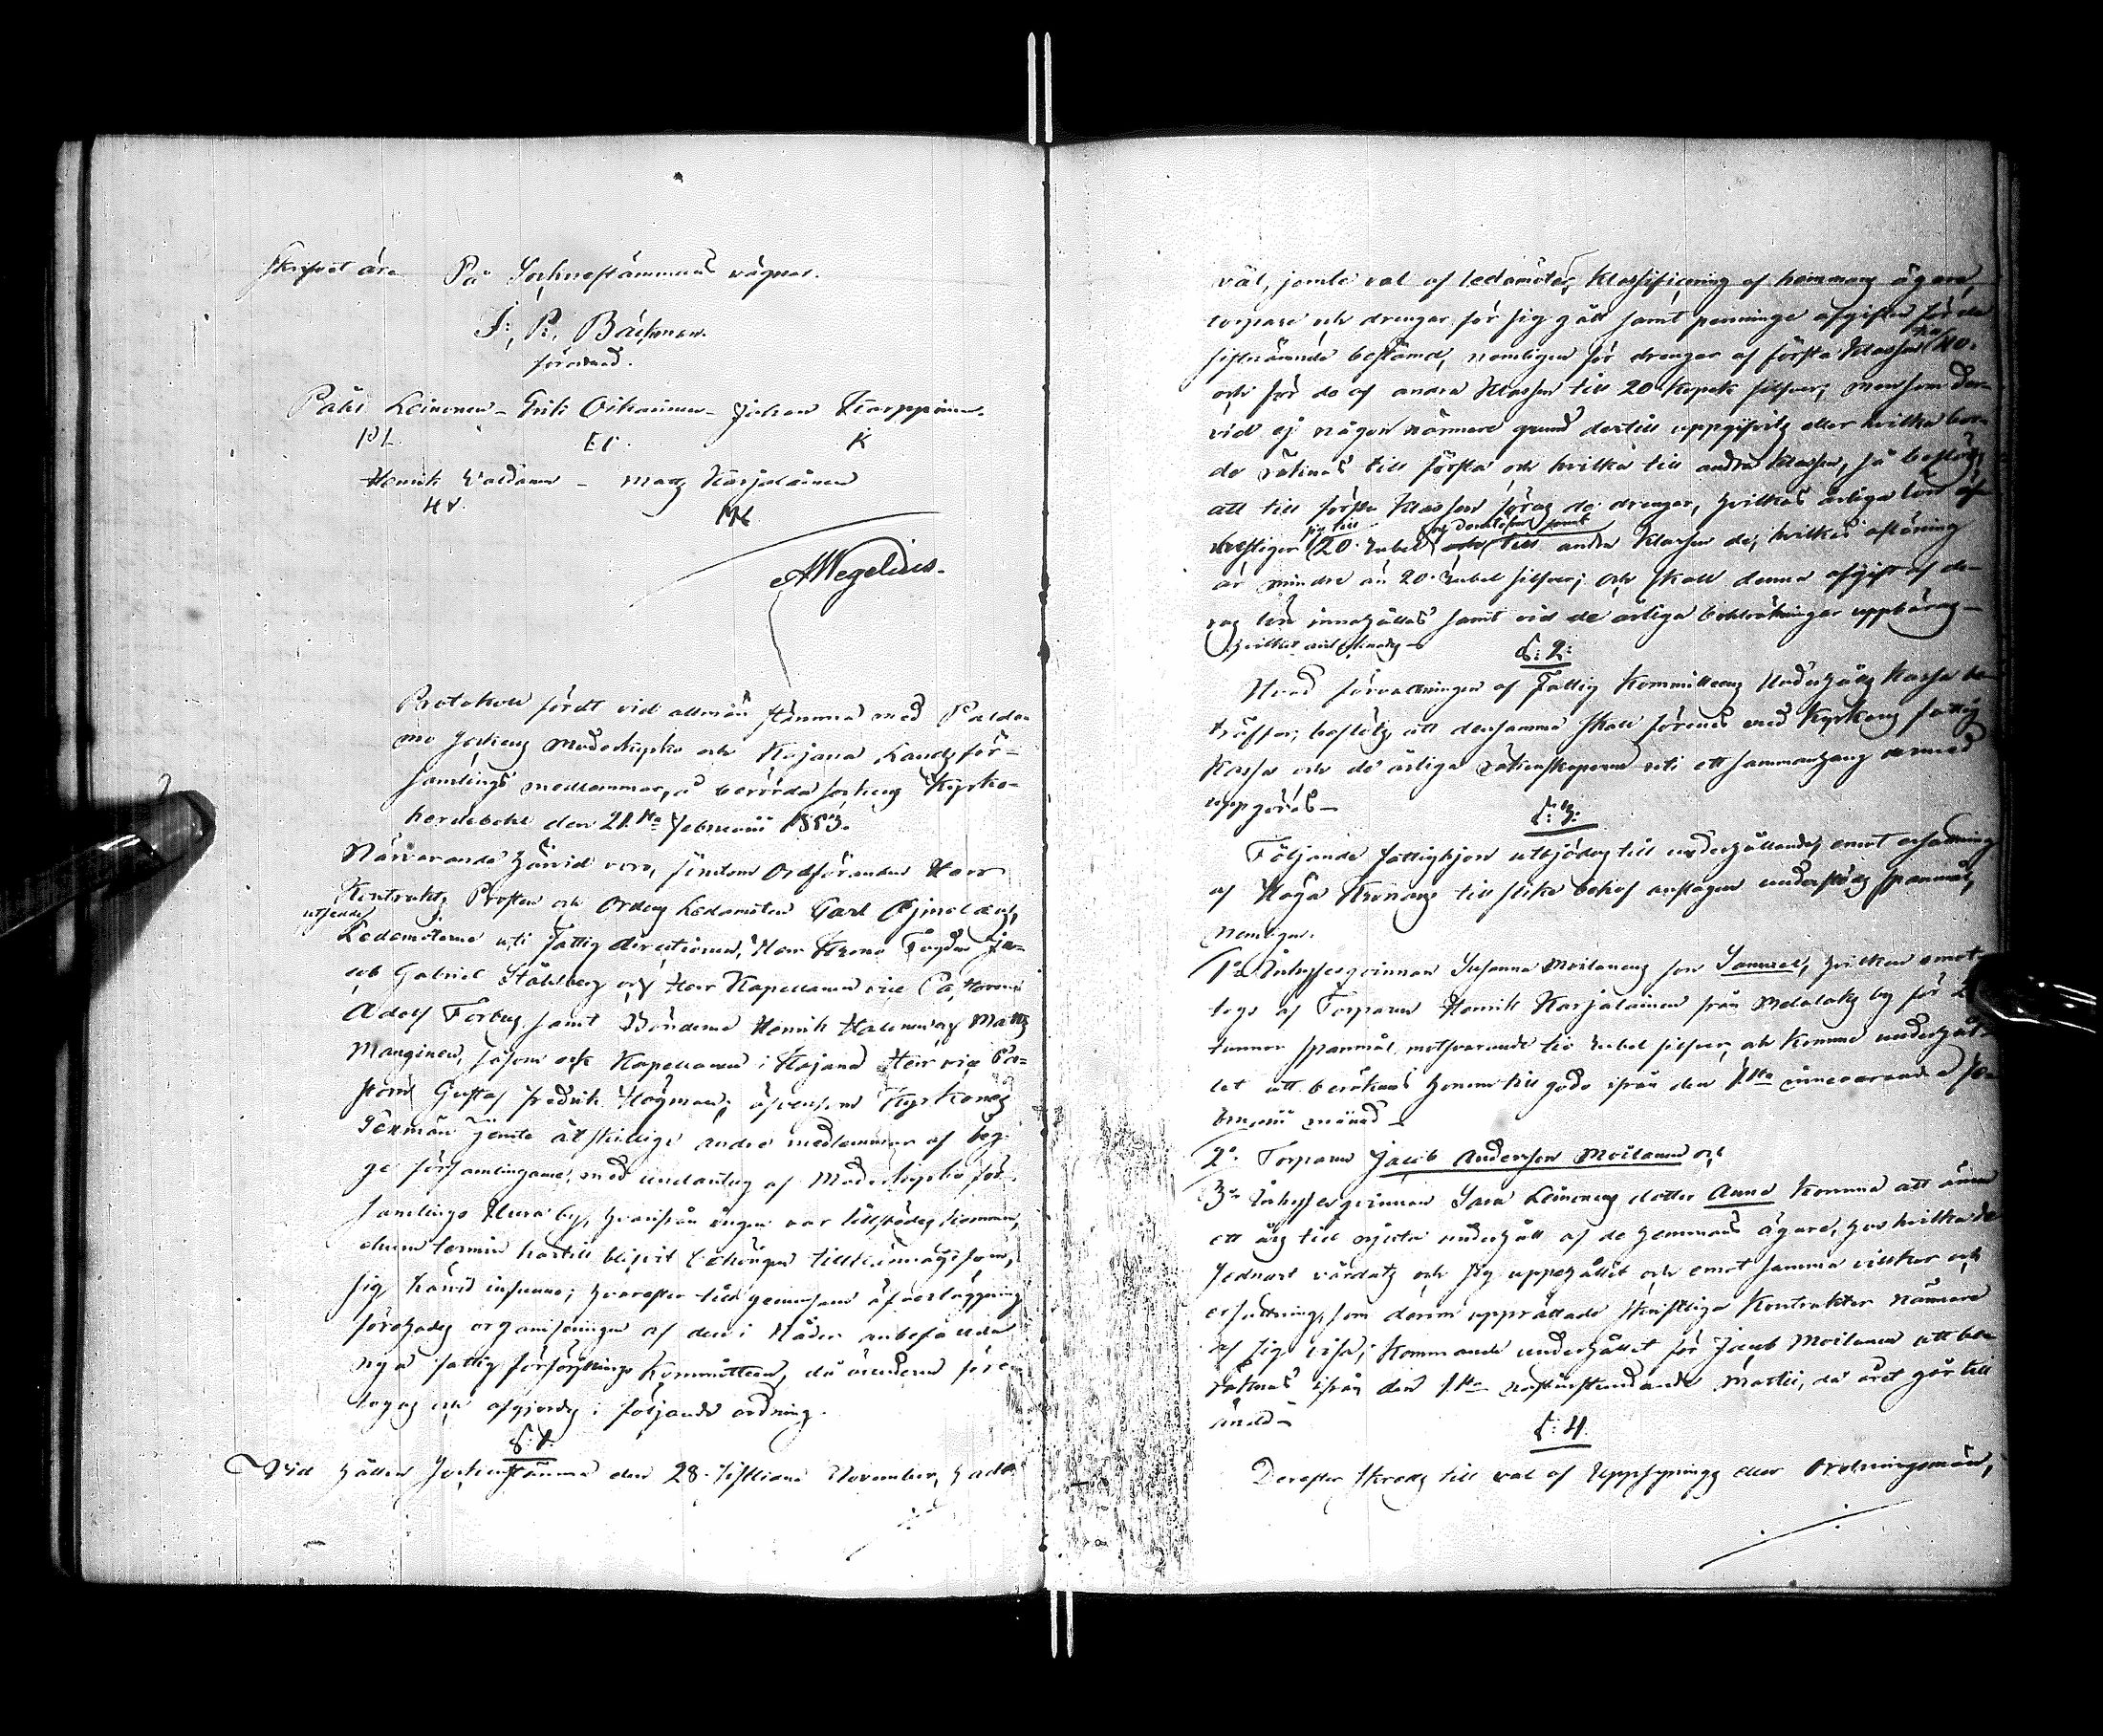 skrifvet åra På Socknestämmans vägnar.
J: R, Bäckman.
förordnad.
Påhl Leinonen – Erik Oikarinen – Johan Karppinen.
PL. EO. K
Henrik – Matts Karjalainen
MK
AWegelius.
Protokoll fördt vid allmän stämma med Palda-
mo Sockens Moderkyrko och Kajana Landsför-
samlings medlemmar, å berörda sockens Kyrko-
herdebohl den 21.sta Februarii 1853.
Närvarande härvid voro, förutom Ordföranden Herr
Kontrakts Prosten och Ordens Ledamoten Carl
utsedde
Ledamoterne uti Fattig directionen, Herr Krono Fogden Ja-
cob Gabriel Ståhlberg och Herr Kapellanen vice Pastoren
Adolf Forbus samt Bönderne Henrik och Matts
Manginen, såsom ock Kapellanen i Kajana Herr vice Pa-
storn Gustaf Fredrik Högman; äfvensom Kyrkones
Sexmän jemte åtskillige andre medlemmar af beg-
ge församlingarne, med undantag af Moderkyrko för-
samlings Uura by, hvarifrån ingen var tillstädes kommen,
ehuru termin härtill blifvit behörigen tillkännagifven,
sig härvid infunno; hvarefter till gemensam öfverläggning
företogs organiseringen af den i Nåder anbefallda
nya fattig försörjnings Kommitteen, då ärenderne före-
togos och afgjordes i följande ordning.
§. 1.
Vid hållen Sockenstämma den 28. sistlidne November, hade
väl, jemte val af ledamöter, klassificering af hemmans ägare,
torpare och drengar för sig gått samt penninge afgiften för de
sistnämnde bestämd, nemligen för drengar af första klassen till 40.
och för de af andra klassen till 20 kopek silfver; men som der-
vid ej någon närmare grund dertill uppgifvits eller hvilka bor-
de räknas till första och hvilka till andra klassen, så beslöts,
att till första klassen föras de drengar, hvilkas årliga lön
sig till och deröfver samt
bestiger 20. rubel och till andra klassen de, hvilkas aflöning
är mindre än 20. rubel silfver; och skall denna afgift af de-
ras lön innehållas samt vid de årliga bokräkningar uppbäras –
hvilket antecknades –
§: 2:
Hvad förvaltningen af Fattig Kommitteens Underhålls Kassa be-
träffar; beslöts att densamma skall förenas med Kyrkans fattig
Kassa och de årliga räkenskaperne uti ett sammanhang dermed
uppgöras –
§: 3:
Följande fattighjon utbjödos till underhållandes emot ersättning
af Höga Kronans till slikt behof anslagne understöds spanmål,
nemligen.
1o Inhysesqvinnan Susanna Moilanens son Samuel, hvilken emot-
togs af Torparen Henrik Karjalainen från Melalaks by för 2
tunnor spanmål motsvarande tio rubel silfver, och kommer underhål-
let att beräknas honom till godo ifrån den 1.sta innevarande Fe-
bruarii månad –
2o. Torparen Jacob Andersson Moilanen och
3o Inhysesqvinnan Sara Leinonens dotter Anna komma att ännu
ett års tid njuta underhåll af de hemmans ägare, hos hvilka de
sednast vårdats och sig uppehållit och emot samma villkor och
ersättning, som derom upprättade skriftliga Kontrakter närmare
af sig visa; kommande underhållet för Jacob Moilanen att be-
räknas ifrån den 1.sta nästinstundande Martii, då året går till
ända –
§: 4.
Derefter skreds till val af Uppsynings eller Ordningsmän,